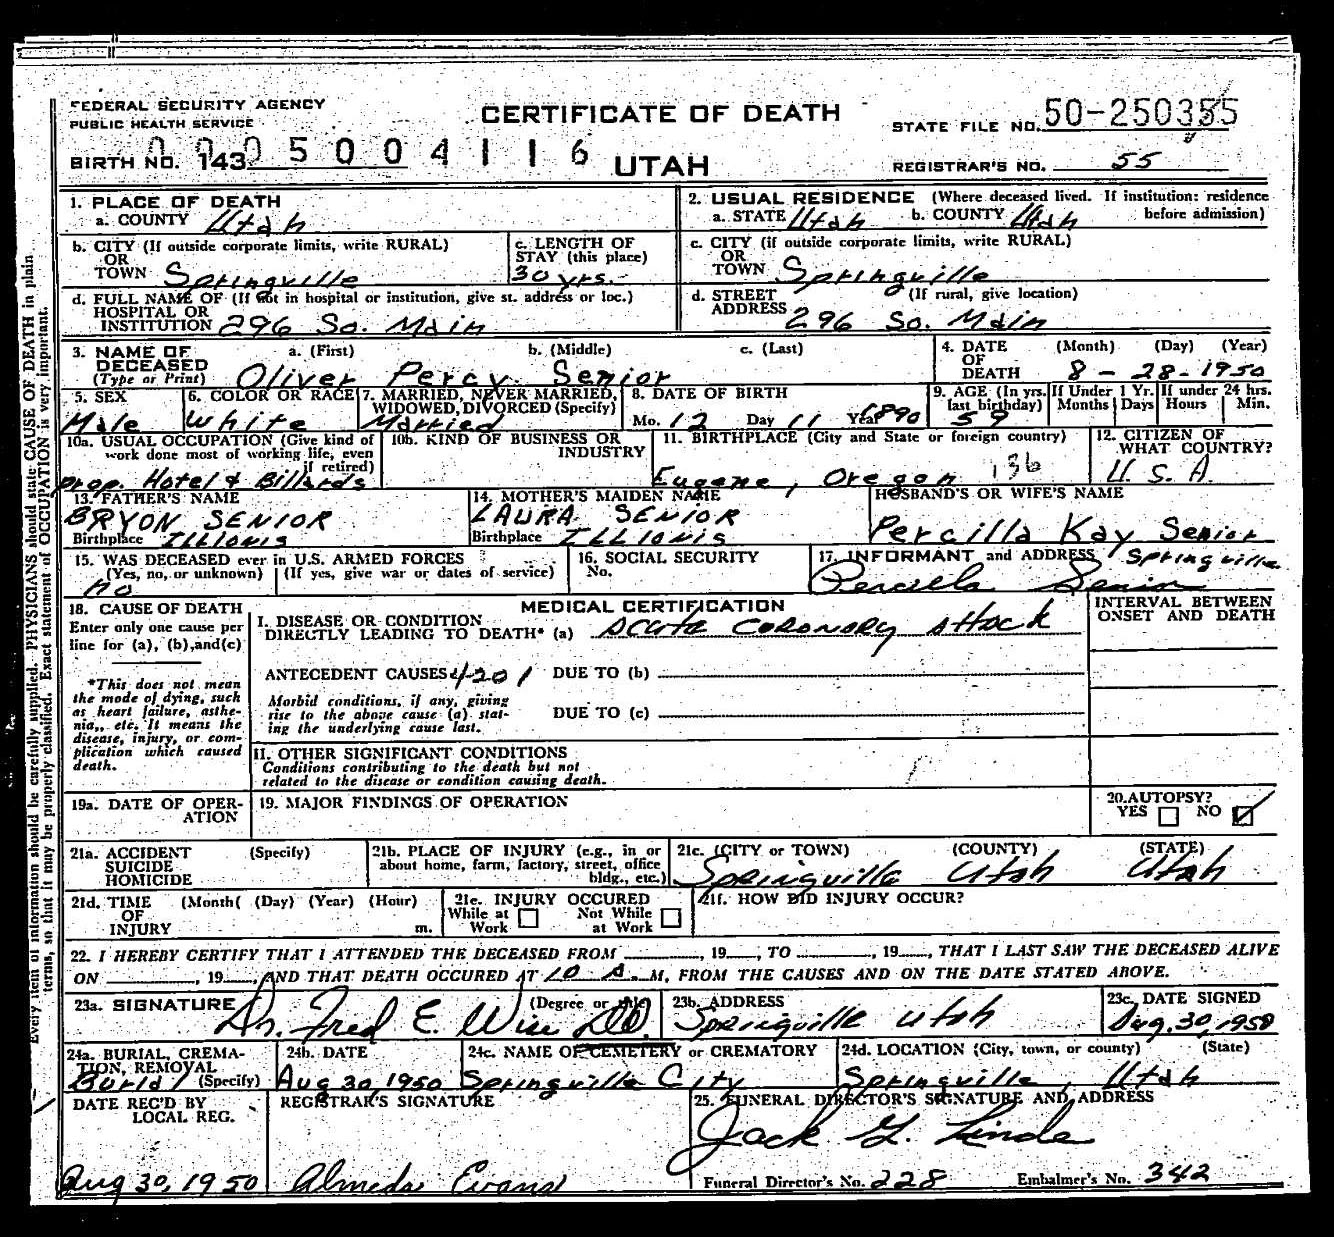 FEDERAL SECURITY AGENCY
PUBLIC HEALTH SERVICE
CERTIFICATE OF DEATH
UTAH
STATE FILE NO. 50-250355
REGISTRAR'S NO. 55
BIRTH NO. 143
0005004116
Every item of information should be carefully supplied. PHYSICIANS should state CAUSE OF DEATH in plain
terms, so that it may be properly classified. Exact statement of OCCUPATION is very important.
1. PLACE OF DEATH
a. COUNTY Utah
2. USUAL RESIDENCE (Where deceased lived. If institution: residence
a. STATE Utah b. COUNTY Utah before admission)
b. CITY (If outside corporate limits, write RURAL)
OR
TOWN Springville
c. LENGTH OF
STAY (this place)
30 yrs.
c. CITY (if outside corporate limits, write RURAL)
OR
TOWN Springville
d. FULL NAME OF (If not in hospital or institution, give st. address or loc.)
HOSPITAL OR
INSTITUTION 296 So. Main
d. STREET (If rural, give location)
ADDRESS 296 So. Main
3. NAME OF a. (First) b. (Middle) c. (Last)
DECEASED
(Type or Print) Oliver Percy Senior
4. DATE (Month) (Day) (Year)
OF
DEATH 8-28-1950
5. SEX
Male
6. COLOR OR RACE
White
7. MARRIED, NEVER MARRIED,
WIDOWED, DIVORCED (Specify)
Married
8. DATE OF BIRTH
Mo. 12 Day 11 Year 1890
9. AGE (In yrs.
last birthday)
59
If Under 1 Yr.
Months Days
If under 24 hrs.
Hours Min.
10a. USUAL OCCUPATION (Give kind of
work done most of working life, even
if retired)
prop. Hotel & Billards
10b. KIND OF BUSINESS OR
INDUSTRY
11. BIRTHPLACE (City and State or foreign country)
Eugene, Oregon 136
12. CITIZEN OF
WHAT COUNTRY?
U. S. A.
13. FATHER'S NAME
BRYON SENIOR
Birthplace ILLIONIS
14. MOTHER'S MAIDEN NAME
LAURA SENIOR
Birthplace ILLIONIS
HUSBAND'S OR WIFE'S NAME
Percilla Kay Senior
15. WAS DECEASED ever in U.S. ARMED FORCES ?
(Yes, no, or unknown) (If yes, give war or dates of service)
no
16. SOCIAL SECURITY
No.
17. INFORMANT and ADDRESS Springville
Percilla Senior
18. CAUSE OF DEATH
Enter only one cause per
line for (a), (b), and (c)
*This does not mean
the mode of dying, such
as heart failure, asthe-
nia, etc. It means the
disease, injury, or com-
plication which caused
death.
MEDICAL CERTIFICATION
I. DISEASE OR CONDITION
DIRECTLY LEADING TO DEATH* (a) acute coronory attack
ANTECEDENT CAUSES 4201 DUE TO (b)
Morbid conditions, if any, giving
rise to the above cause (a) stat-
ing the underlying cause last.
DUE TO (c)
II. OTHER SIGNIFICANT CONDITIONS
Conditions contributing to the death but not
related to the disease or condition causing death.
INTERVAL BETWEEN
ONSET AND DEATH
19a. DATE OF OPER-
ATION
19. MAJOR FINDINGS OF OPERATION
20. AUTOPSY?
YES NO
21a. ACCIDENT (Specify)
SUICIDE
HOMICIDE
21b. PLACE OF INJURY (e.g., in or
about home, farm, factory, street, office
bldg., etc.)
21c. (CITY or TOWN) (COUNTY) (STATE)
Springville Utah Utah
21d. TIME (Month( (Day) (Year) (Hour)
OF
INJURY m.
21e. INJURY OCCURED
While at Work Not While at Work
21f. HOW DID INJURY OCCUR?
22. I HEREBY CERTIFY THAT I ATTENDED THE DECEASED FROM , 19 , TO , 19 , THAT I LAST SAW THE DECEASED ALIVE
ON , 19 , AND THAT DEATH OCCURED AT 10 A. M, FROM THE CAUSES AND ON THE DATE STATED ABOVE.
23a. SIGNATURE (Degree or title)
Dr. Fred E. Wise
23b. ADDRESS
Springville Utah
23c. DATE SIGNED
Aug. 30, 1950
24a. BURIAL, CREMA-
TION, REMOVAL
Burial (Specify)
24b. DATE
Aug 30, 1950
24c. NAME OF CEMETERY or CREMATORY
Springville City
24d. LOCATION (City, town, or county) (State)
Springville, Utah
DATE REC'D BY
LOCAL REG.
Aug 30, 1950
REGISTRAR'S SIGNATURE
Almeda Evans
25. FUNERAL DIRECTOR'S SIGNATURE AND ADDRESS
Jack
Funeral Director's No. 228 Embalmer's No. 342